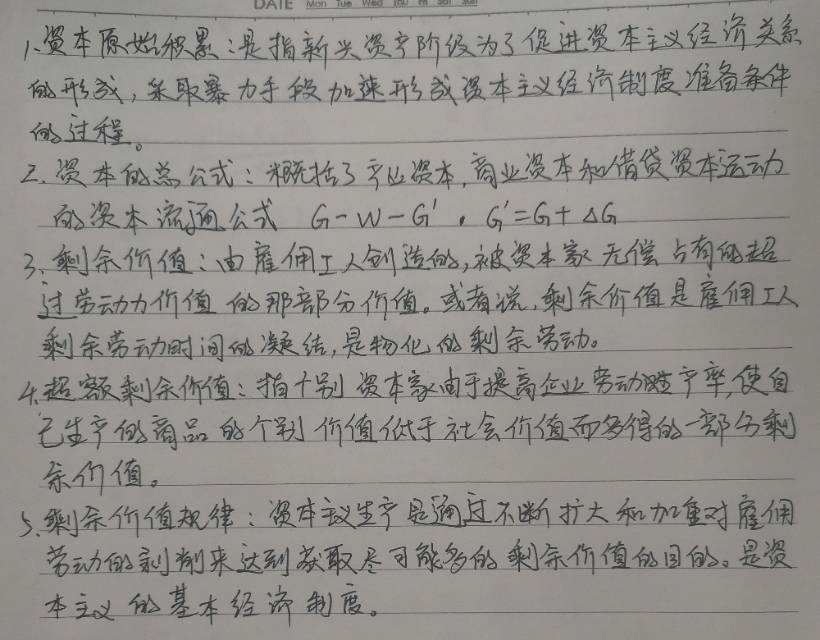 DATE Mon Tue Wed Thu Fri Sat Sun
1、资本原始积累：是指新兴资产阶级为了促进资本主义经济关系
的形成，采取暴力手段加速形成资本主义经济制度准备条件
的过程。
2、资本的总公式：概括了产业资本，商业资本和借贷资本运动
的资本流通公式 G-W-G'。G'=G+ΔG
3、剩余价值：由雇佣工人创造的，被资本家无偿占有的超
过劳动力价值的那部分价值。或者说，剩余价值是雇佣工人
剩余劳动时间的凝结，是物化的剩余劳动。
4、超额剩余价值：指个别资本家由于提高企业劳动生产率，使自
己生产的商品的个别价值低于社会价值而多得的一部分剩
余价值。
5、剩余价值规律：资本主义生产是通过不断扩大和加重对雇佣
劳动的剥削来达到获取尽可能多的剩余价值的目的。是资
本主义的基本经济制度。